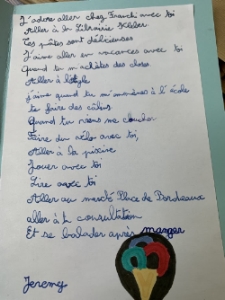 J'adore aller chez Franchi avec toi
Aller à la Librairie Kléber
Tes pâtes sont délicieuses
J'aime aller en vacances avec toi
Quand tu m'achètes des choses
Aller à
J'aime quand tu m'amènes à l'école
te faire des câlins
Quand tu viens me
Faire du vélo avec toi,
Aller à la piscine
Jouer avec toi
Lire avec toi
Aller au marché Place de Bordeaux
aller à la consultation
Et se balader après manger
Jeremy